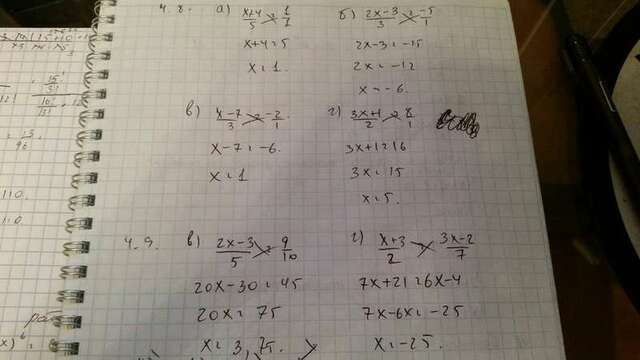 4.8. а) x+4/5 = 1/1
x+4=5
x=1.
б) 2x-3/3 = -5/1
2x-3=-15
2x=-12
x=-6.
в) x-7/3 = -2/1
x-7=-6.
x=1
г) 3x+1/2 = 8/1
3x+1=16
3x=15
x=5.
4.9. в) 2x-3/5 = 9/10
20x-30=45
20x=75
x=3,75.
г) x+3/2 = 3x-2/7
7x+21=6x-4
7x-6x=-25
x=-25.